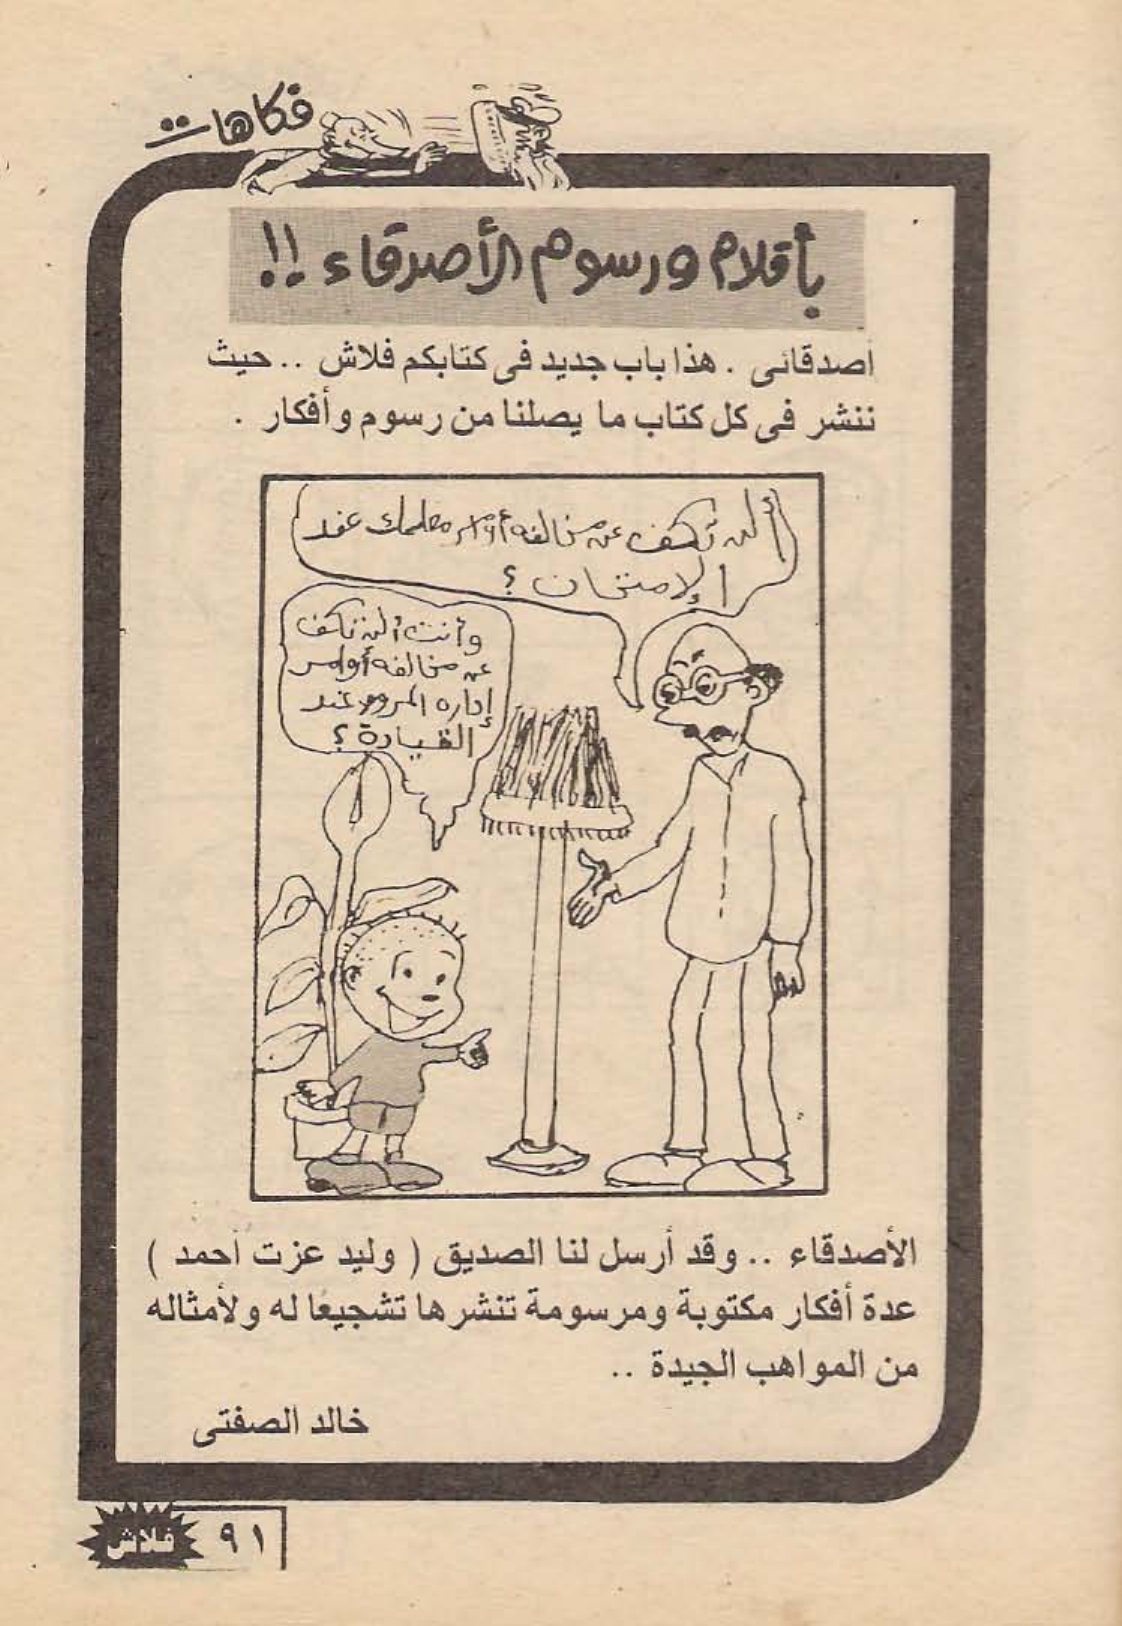 فكاهات
بأقلام ورسوم الأصدقاء !!
أصدقائى . هذا باب جديد فى كتابكم فلاش .. حيث
ننشر فى كل كتاب ما يصلنا من رسوم وأفكار .
ألن تكف عن مخالفه أوامر معلمك عند
الإمتحان ؟
وأنت ألن تكف
عن مخالفه أوامر
إداره المرور عند
القيادة ؟
الأصدقاء .. وقد أرسل لنا الصديق ( وليد عزت أحمد )
عدة أفكار مكتوبة ومرسومة تنشرها تشجيعًا له ولأمثاله
من المواهب الجيدة ..
خالد الصفتى
٩١ فلاش